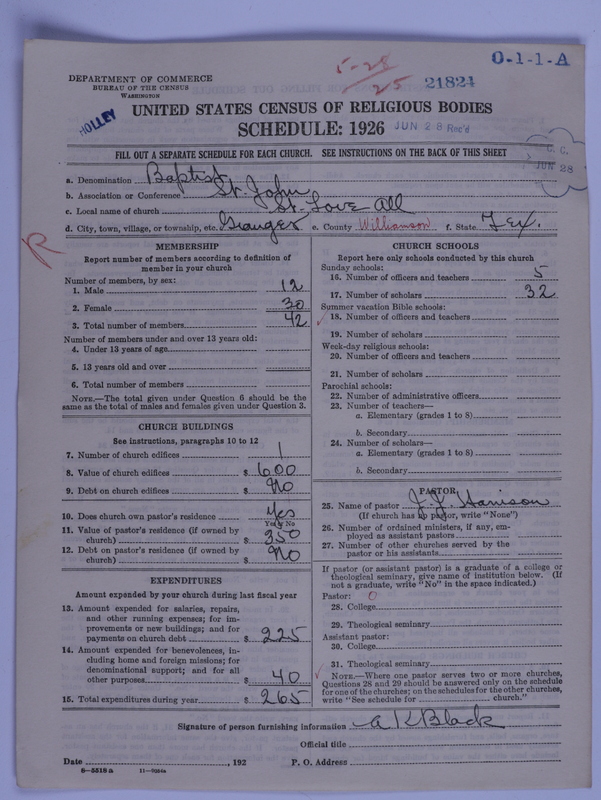 5-28/25
21824
0-1-1-A
DEPARTMENT OF COMMERCE
BUREAU OF THE CENSUS
WASHINGTON
HOLLEY
UNITED STATES CENSUS OF RELIGIOUS BODIES
SCHEDULE: 1926 JUN 28 Rec'd
JUN 28
FILL OUT A SEPARATE SCHEDULE FOR EACH CHURCH. SEE INSTRUCTIONS ON THE BACK OF THIS SHEET
a. Denomination Baptist
b. Association or Conference St. John
c. Local name of church St. Love all
d. City, town, village, or township, etc. Granger e. County Williamson f. State Tex.
R
MEMBERSHIP
Report number of members according to definition of
member in your church
Number of members, by sex:
1. Male 12
2. Female 30
3. Total number of members 42
Number of members under and over 13 years old:
4. Under 13 years of age
5. 13 years old and over
6. Total number of members
NOTE.—The total given under Question 6 should be
same as the total of males and females given under Question 3.
CHURCH BUILDINGS
See instructions, paragraphs 10 to 12
7. Number of church edifices 1
8. Value of church edifices $ 600
9. Debt on church edifices $ No
10. Does church own pastor's residence Yes
Yes or No
11. Value of pastor's residence (if owned by
church) $ 350
12. Debt on pastor's residence (if owned by
church) $ No
EXPENDITURES
Amount expended by your church during last fiscal year
13. Amount expended for salaries, repairs,
and other running expenses; for im-
provements or new buildings; and for
payments on church debt $ 225
14. Amount expended for benevolences, in-
cluding home and foreign missions; for
denominational support; and for all
other purposes $ 40
15. Total expenditures during year $ 265
CHURCH SCHOOLS
Report here only schools conducted by this church
Sunday schools:
16. Number of officers and teachers 5
17. Number of scholars 32
Summer vacation Bible schools:
18. Number of officers and teachers
19. Number of scholars
Week-day religious schools:
20. Number of officers and teachers
21. Number of scholars
Parochial schools:
22. Number of administrative officers
23. Number of teachers—
a. Elementary (grades 1 to 8)
b. Secondary
24. Number of scholars—
a. Elementary (grades 1 to 8)
b. Secondary
PASTOR
25. Name of pastor J. J. Harrison
(If church has no pastor, write "None")
26. Number of ordained ministers, if any, em-
ployed as assistant pastors
27. Number of other churches served by the
pastor or his assistants
If pastor (or assistant pastor) is a graduate of a college or
theological seminary, give name of institution below. (If
not a graduate, write "No" in the space indicated.)
Pastor: 0
28. College
29. Theological seminary
Assistant pastor:
30. College
31. Theological seminary
NOTE.—Where one pastor serves two or more churches,
Questions 28 and 29 should be answered only on the schedule
for one of the churches; on the schedules for the other churches,
write "See schedule for church."
Signature of person furnishing information A K Black
Official title
Date , 192 P. O. Address
8-5518a 11-9054a